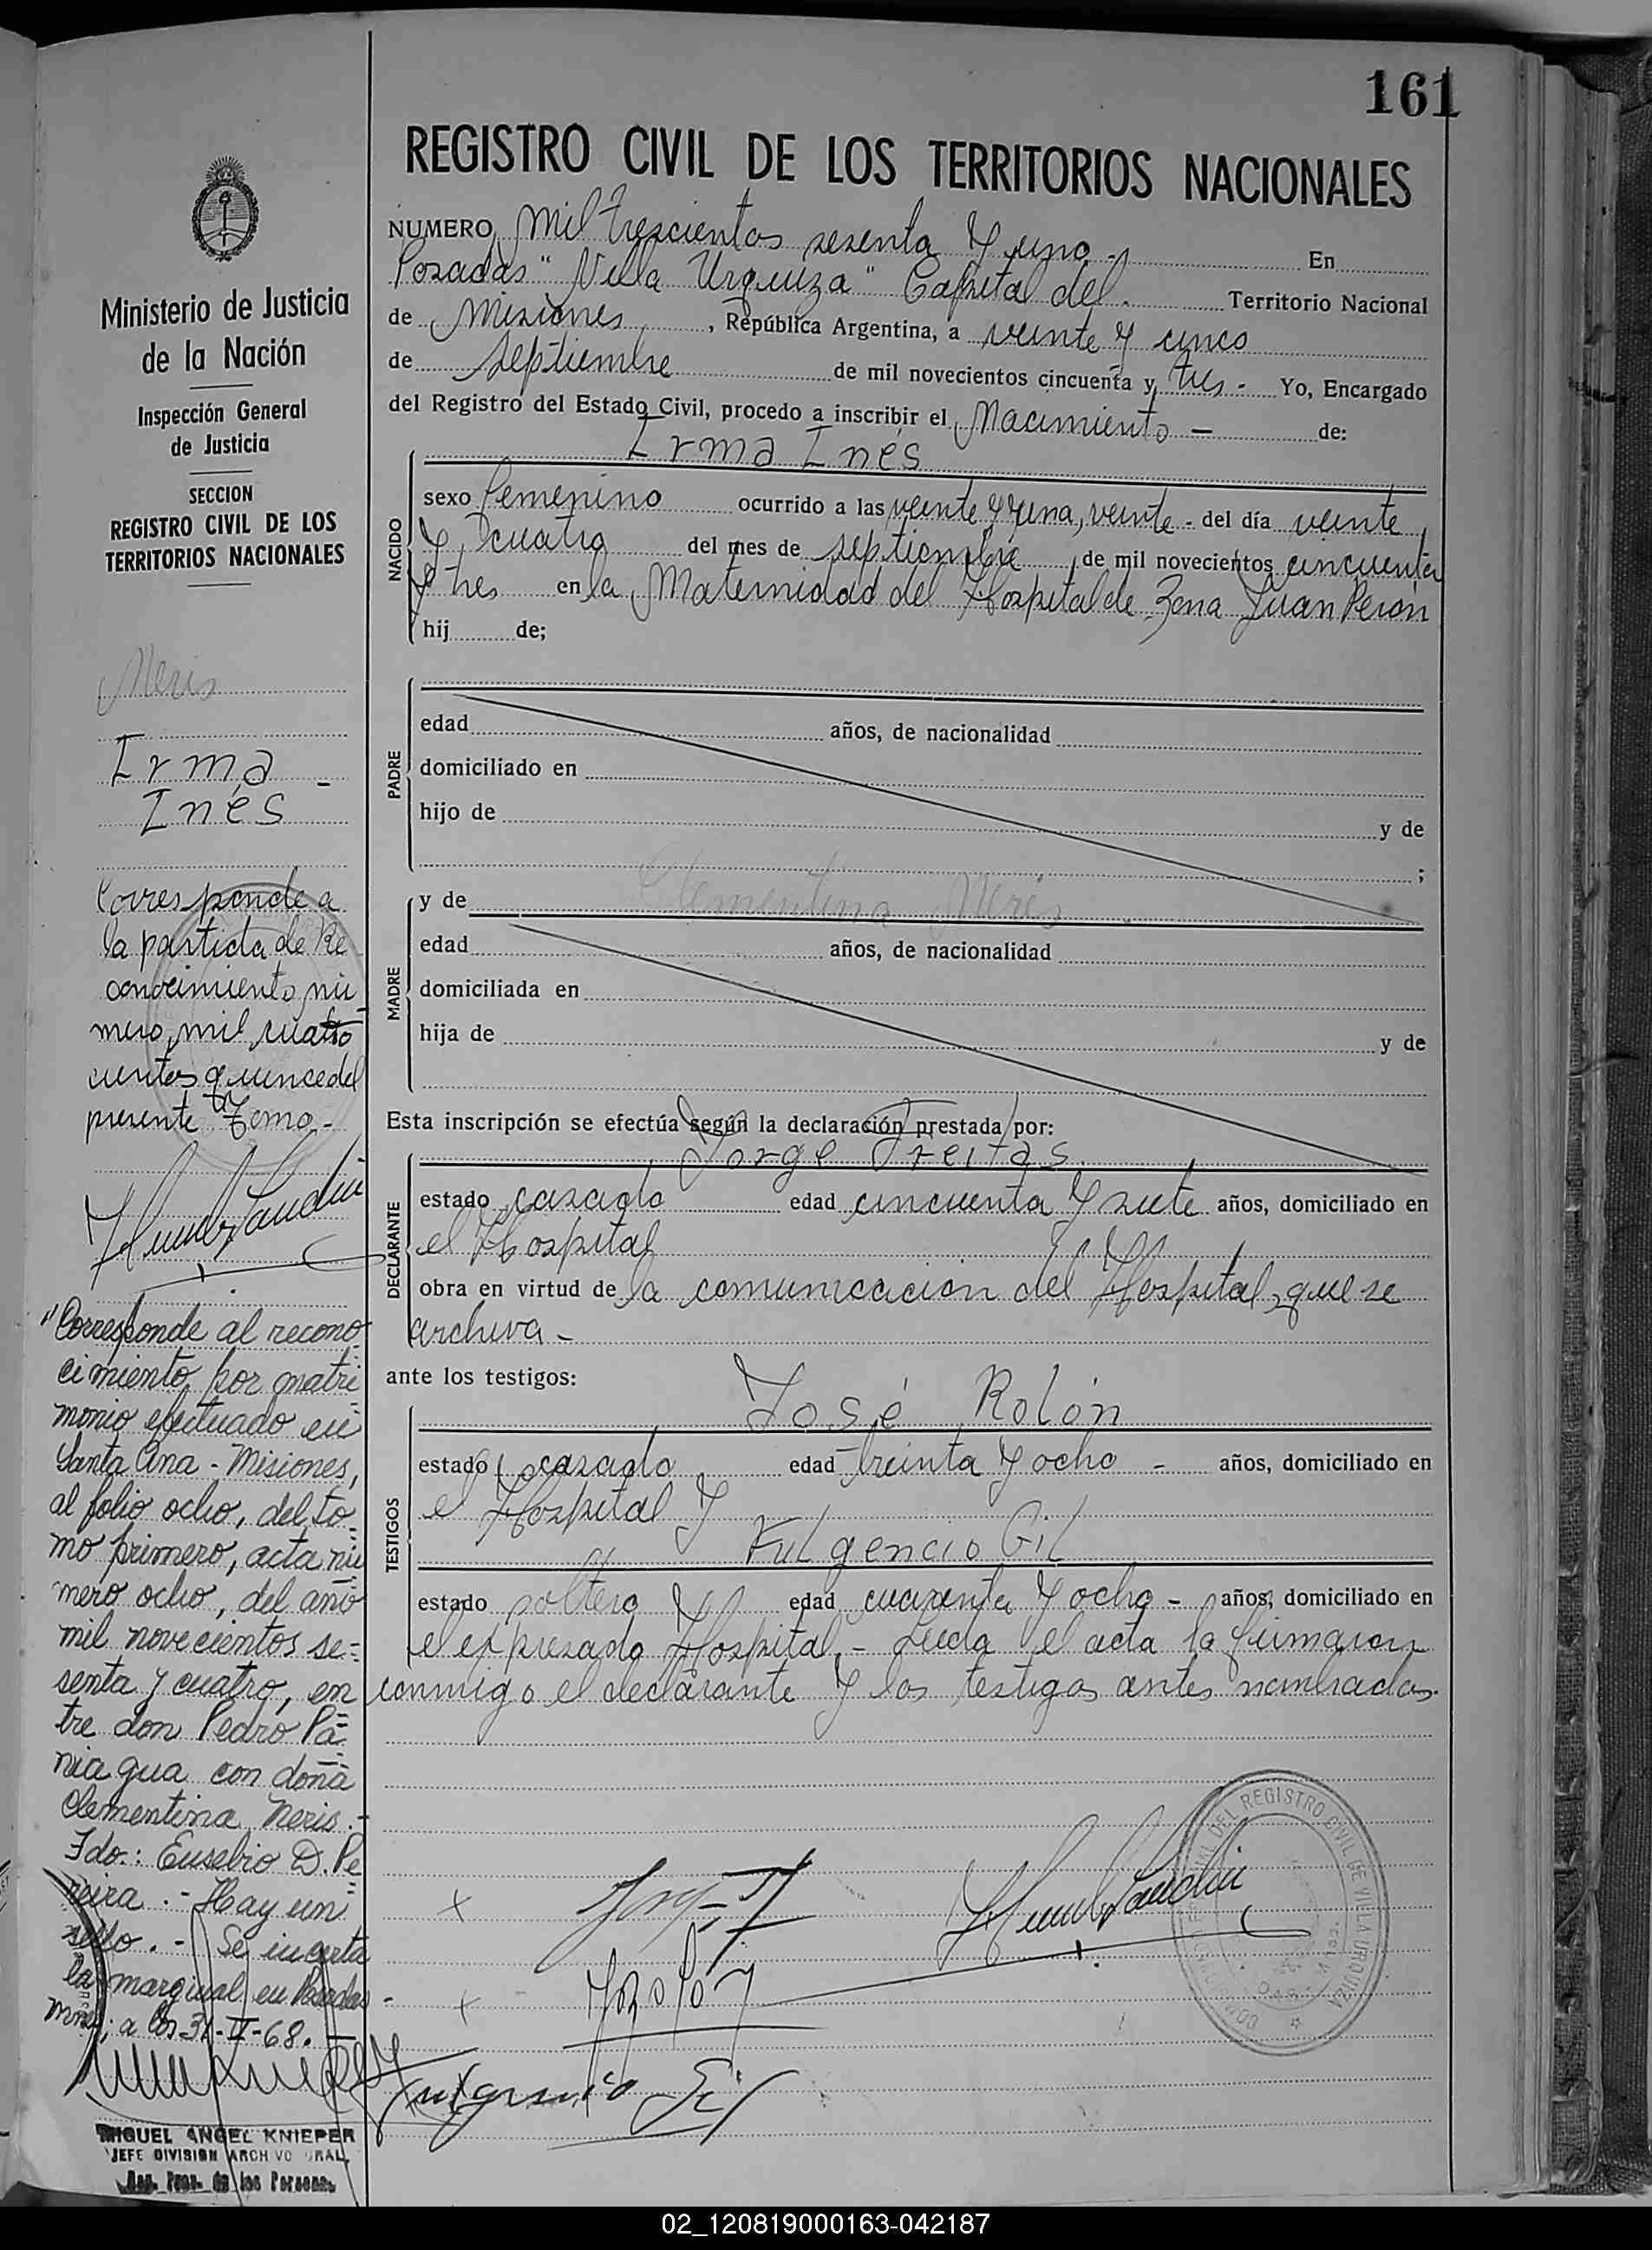 161
REGISTRO CIVIL DE LOS TERRITORIOS NACIONALES
NUMERO mil trescientos sesenta y uno.- En
Posadas "Villa Urquiza" Capital del Territorio Nacional
de Misiones, República Argentina, a veinte y cinco
de septiembre de mil novecientos cincuenta y tres - Yo, Encargado
del Registro del Estado Civil, procedo a inscribir el Nacimiento — de:
Irma Inés
NACIDO
sexo femenino ocurrido a las veinte y una, veinte - del día veinte
y cuatro del mes de septiembre, de mil novecientos cincuenta
y tres en la Maternidad del Hospital de Zona Juan Perón
hij de;
PADRE
edad años, de nacionalidad
domiciliado en
hijo de y de
;
MADRE
y de Clementina Neris
edad años, de nacionalidad
domiciliada en
hija de y de
Esta inscripción se efectúa según la declaración prestada por:
Jorge Freitas
DECLARANTE
estado casado edad cincuenta y siete años, domiciliado en
el Hospital
obra en virtud de la comunicación del Hospital, que se
archiva -
ante los testigos:
José Rolón
TESTIGOS
estado casado edad treinta y ocho - años, domiciliado en
el Hospital y
Fulgencio Gil
estado soltero edad cuarenta y ocho - años, domiciliado en
el expresado Hospital. - Leída el acta la firmaron
conmigo el declarante y los testigos antes nombrados.
Fulgencio Gil
DEL REGISTRO CIVIL DE VILLA URQUIZA
Ministerio de Justicia
de la Nación
Inspección General
de Justicia
SECCION
REGISTRO CIVIL DE LOS
TERRITORIOS NACIONALES
Neris
Irma -
Inés
Corresponde a
la partida de Re
conocimiento nú
mero mil cuatro
cientos quince del
presente Tomo -
"Corresponde al recono
cimiento por matri
monio efectuado en
Santa Ana - Misiones,
al folio ocho, del to
mo primero, acta nú
mero ocho, del año
mil novecientos se=
senta y cuatro, en
tre don Pedro Pa=
nia gua con doña
Clementina Neris.-
Fdo.: Eusebio D. Pe
reira.- Hay un
sello.- Se inserta
la marginal en Posadas -
Mnes, a los 31-V-68.-
MIGUEL ANGEL KNIEPER
JEFE DIVISION ARCHIVO GRAL.
Reg. Prov. de las Personas
02_120819000163-042187